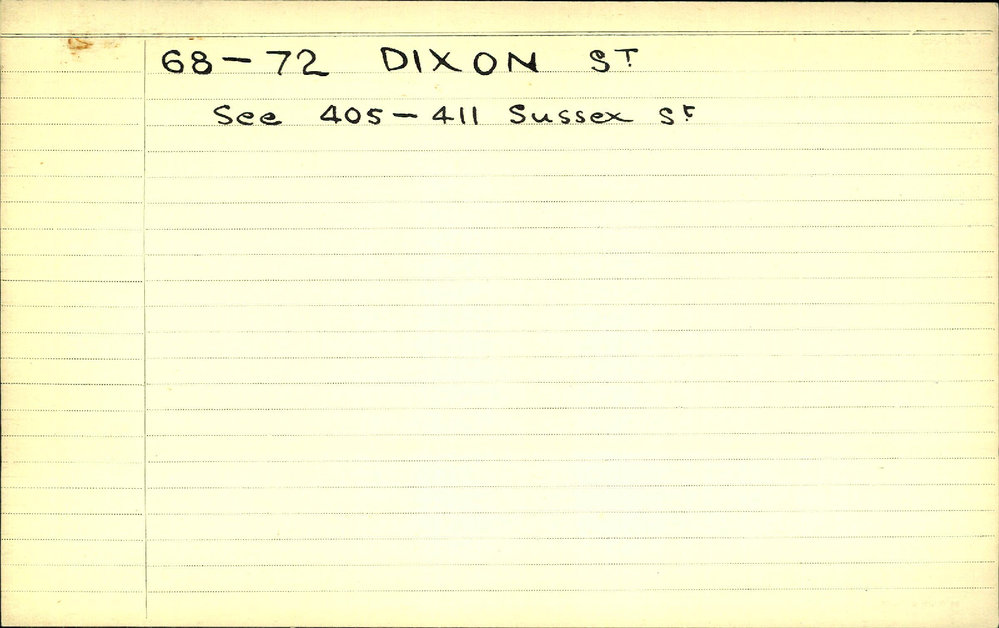 68-72 DIXON ST
See 405-411 Sussex St